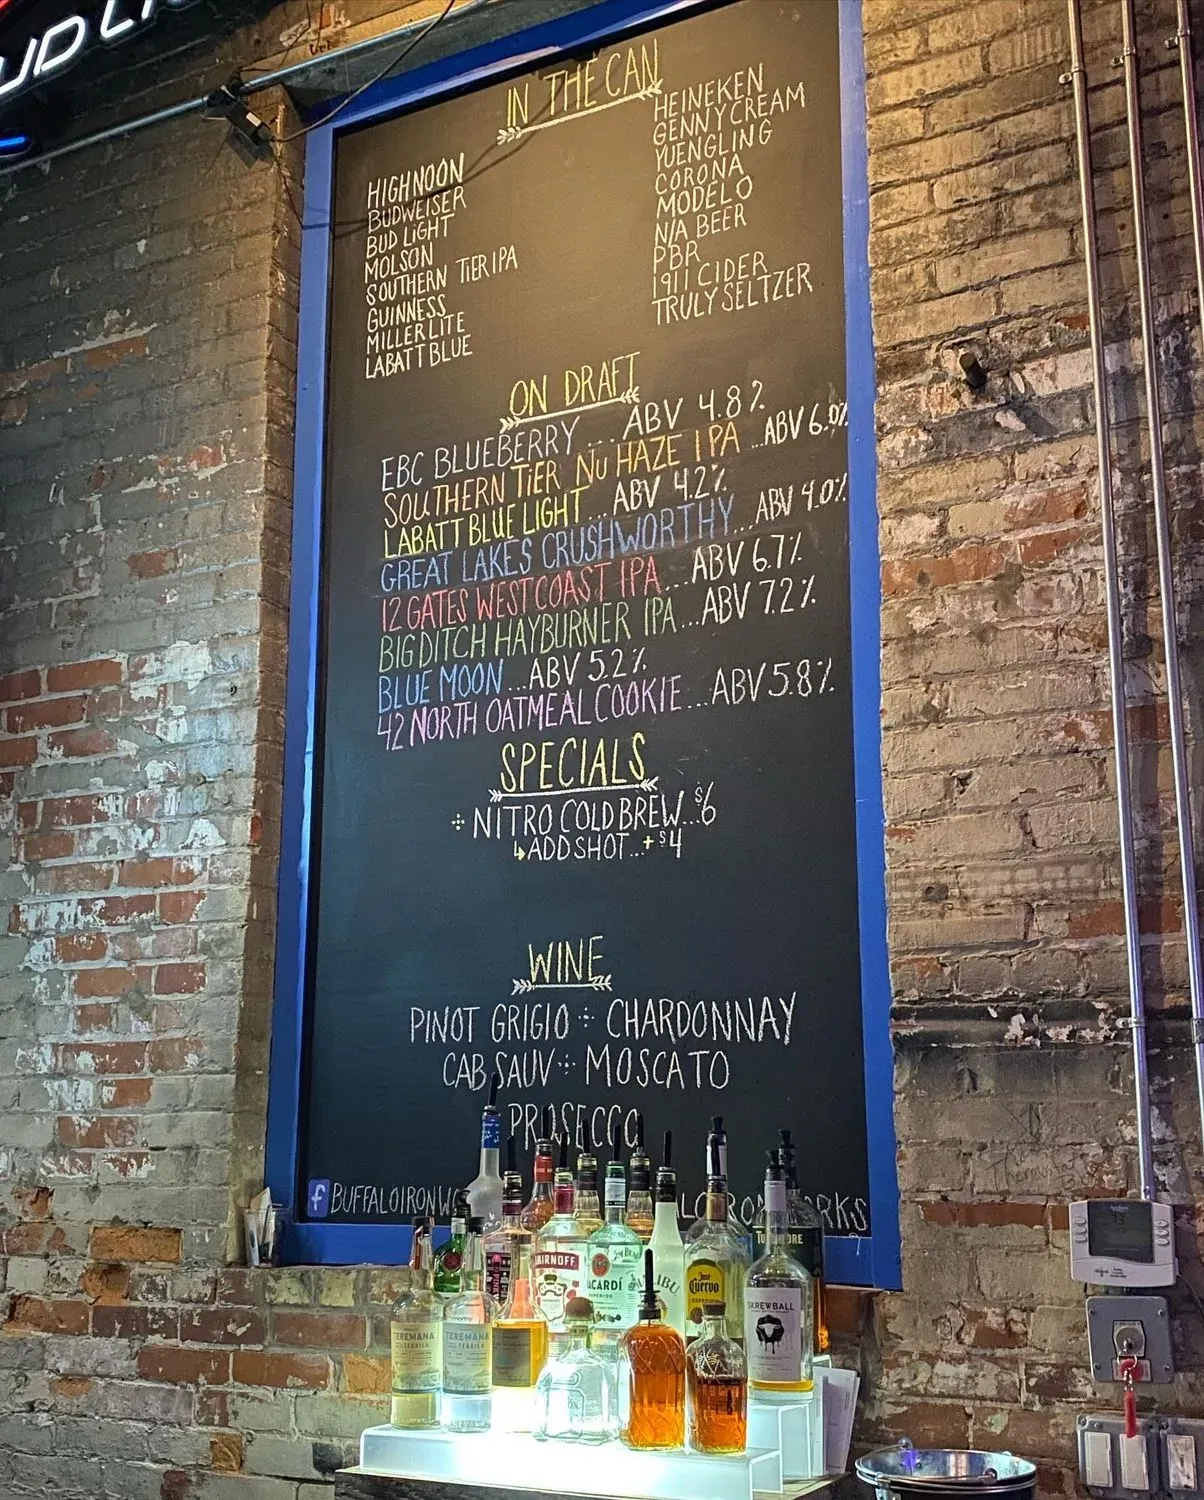 UD LI
IN THE CAN
HIGHNOON
BUDWEISER
BUD LIGHT
MOLSON
SOUTHERN TIER IPA
GUINNESS
MILLER LITE
LABATT BLUE
HEINEKEN
GENNY CREAM
YUENGLING
CORONA
MODELO
N/A BEER
PBR
1911 CIDER
TRULY SELTZER
ON DRAFT
EBC BLUEBERRY.... ABV 4.8%
SOUTHERN TIER NU HAZE IPA ...ABV 6.0%
LABATT BLUE LIGHT...ABV 4.2%
GREAT LAKES CRUSHWORTHY...ABV 4.0%
12 GATES WEST COAST IPA...ABV 6.7%
BIG DITCH HAYBURNER IPA...ABV 7.2%
BLUE MOON...ABV 5.2%
42 NORTH OATMEAL COOKIE...ABV 5.8%
SPECIALS
NITRO COLD BREW...$6
ADD SHOT...+$4
WINE
PINOT GRIGIO CHARDONNAY
CAB SAUV MOSCATO
PROSECCO
f BUFFALOIRONWO
LOIRONWORKS
SMIRNOFF
BACARDÍ
SUPERIOR
JIM BEAM
MALIBU
Jose Cuervo
SKREWBALL
TEREMANA
TEQUILA
TEREMANA
TEQUILA